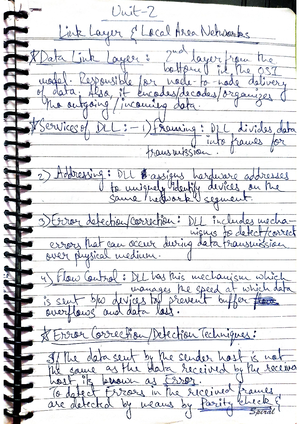 Unit-2
Link Layer & Local Area Networks
* Data Link Layer : 2nd layer from the
bottom in the OSI
model. Responsible for node-to node delivery
of data. Also, it encodes/decodes/organizes
the outgoing / incoming data.
* Services of DLL : - 1) Framing : DLL divides data
into frames for
transmission.
2) Addressing : DLL assigns hardware addresses
to uniquely identify devices on the
same network segment.
3) Error detection/correction : DLL includes mecha-
nisms to detect/correct
errors that can occur during data transmission
over physical medium.
4) Flow Control : DLL has this mechanism which
manages the speed at which data
is sent b/w devices to prevent buffer
overflows and data loss.
* Error Correction/Detection Techniques :
If the data sent by the sender host is not
the same as the data received by the receiver
host, its known as Error.
To detect Errors in the received frames
are detected by means by Parity Check &
Spiral